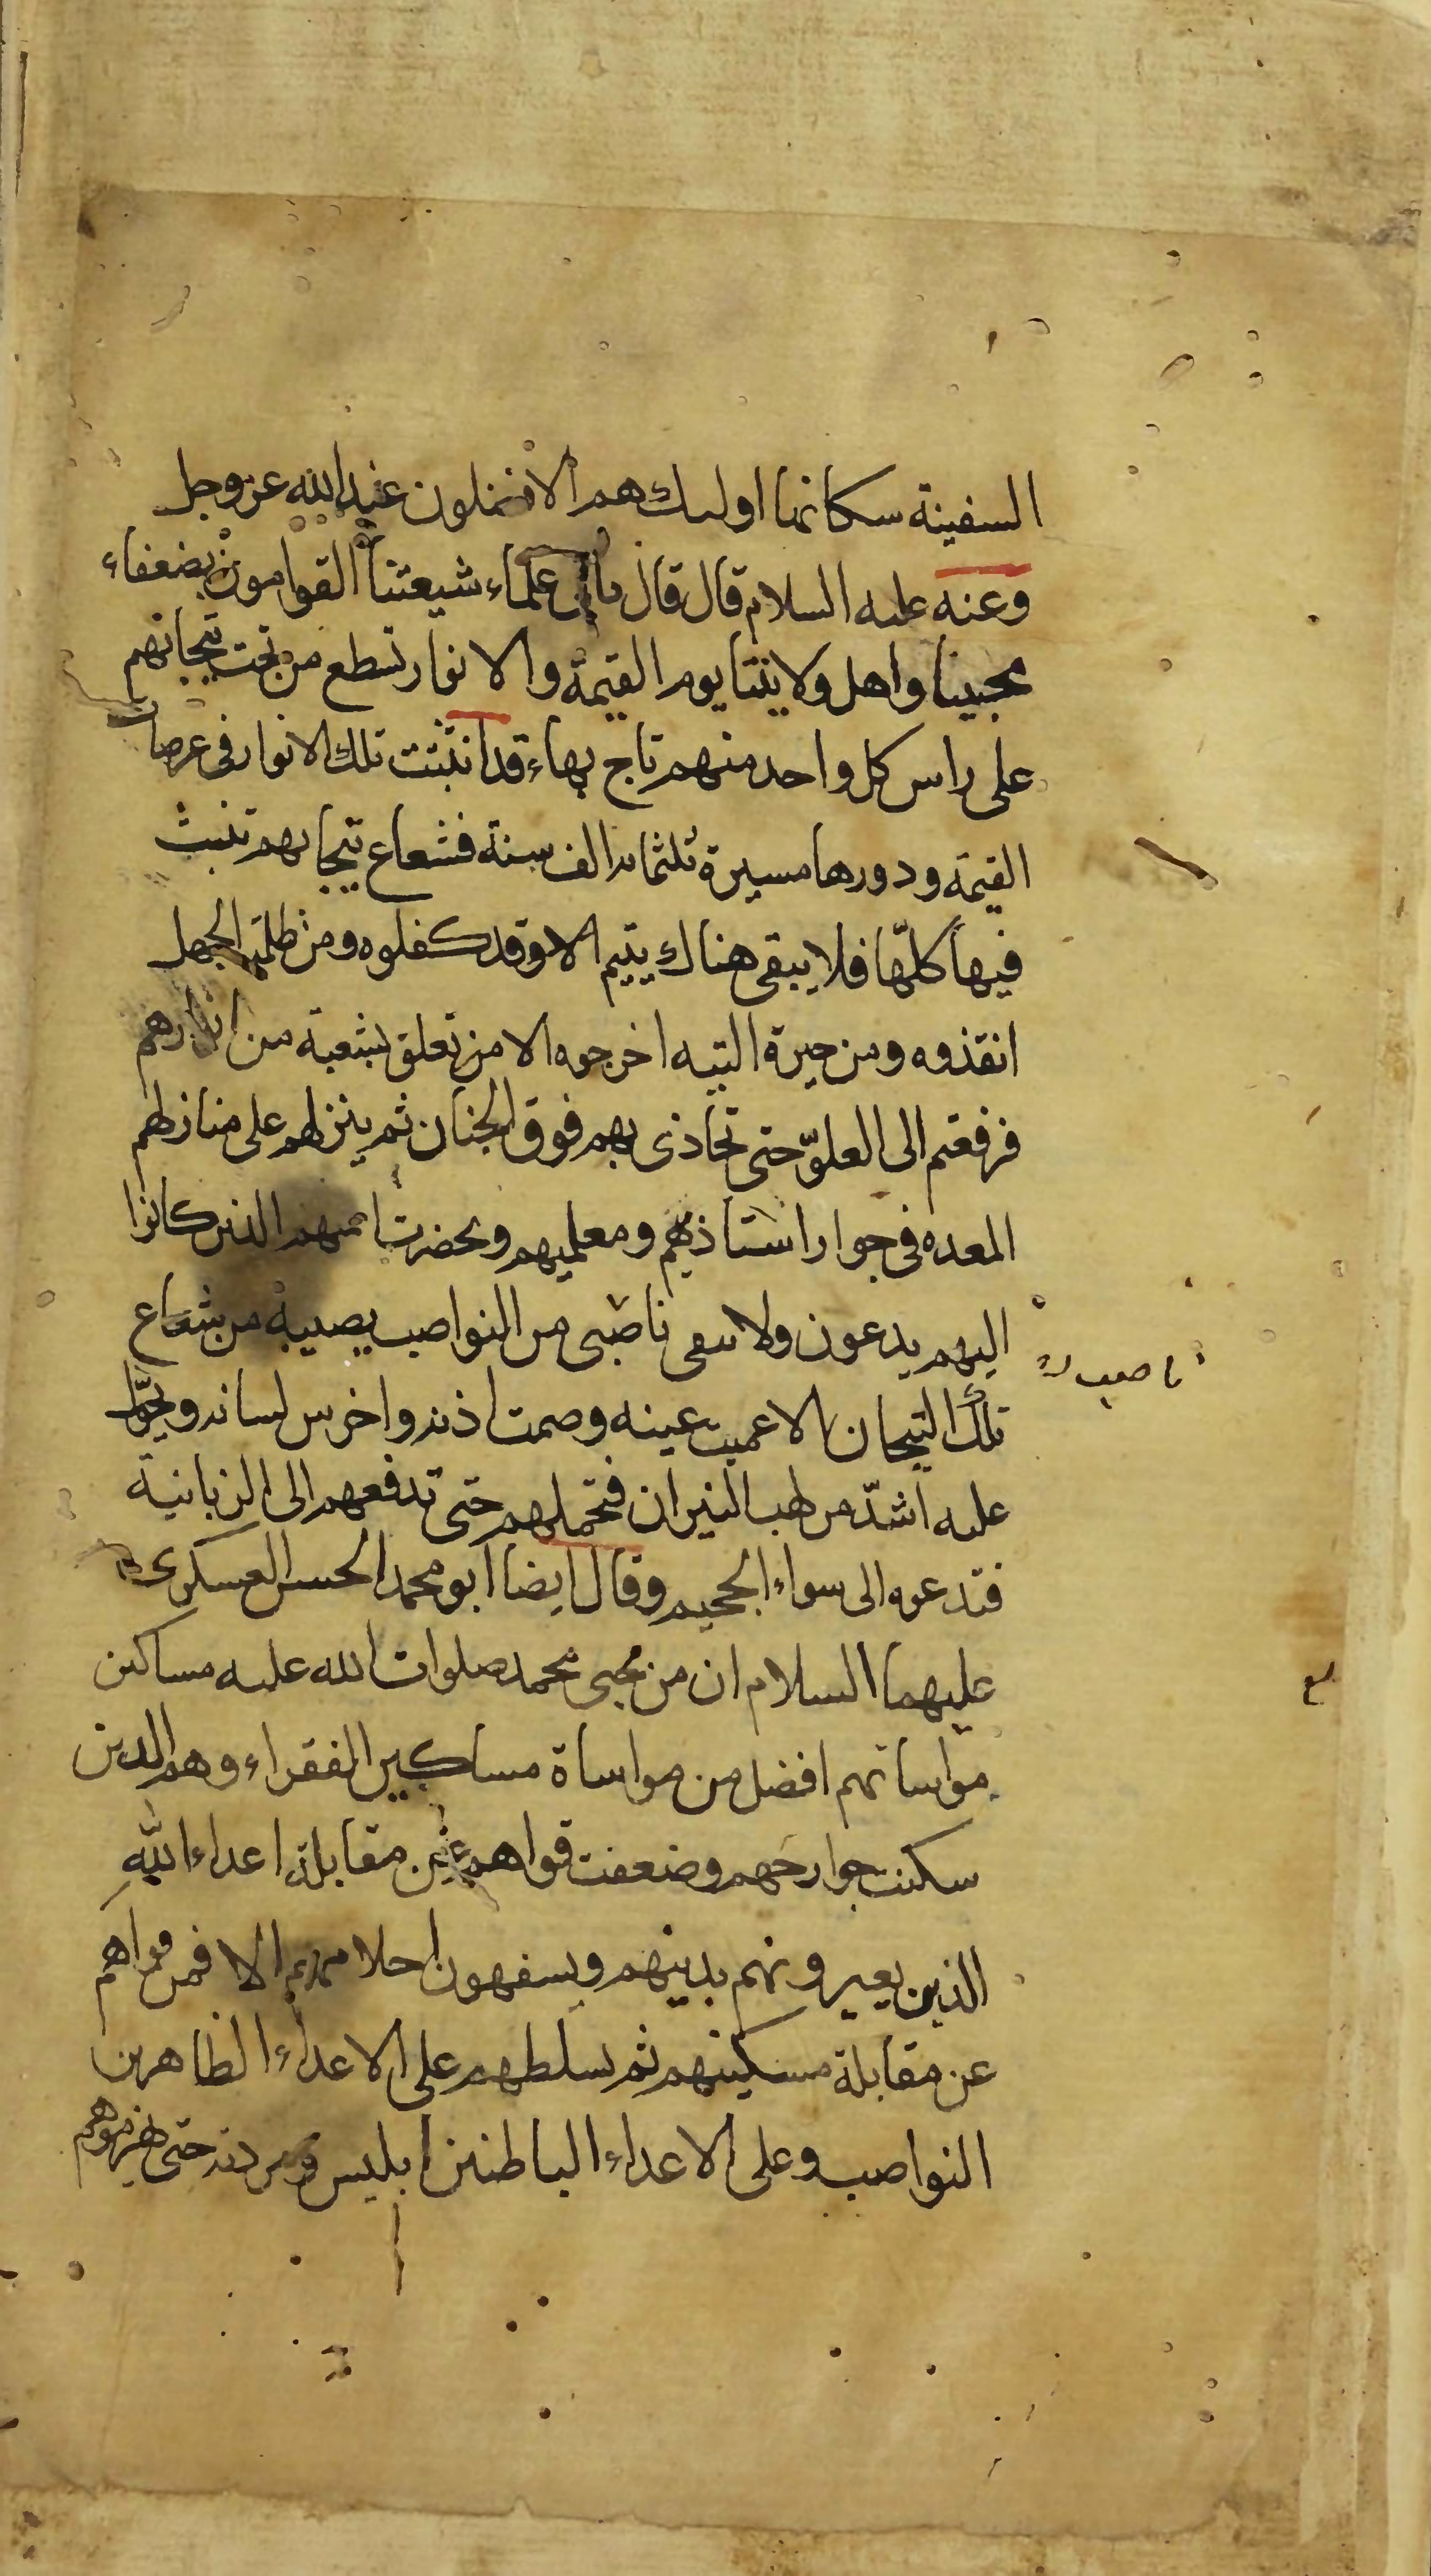 السفينة سكانها اولىك هم الافضلون عند الله عز وجل
وعنه عليه السلام قال قال ياتى علماء شيعتنا القوامون بضعفاء
محبينا واهل ولايتنا يوم القيمة والانوار تسطع من تحت تيجانهم
على راس كل واحد منهم تاج بهاء قد انبثت تلك الانوار فى عرصات
القيمة ودورها مسيرة ثلثمائه الف سنة فشعاع تيجانهم تنبث
فيها كلها فلا يبقى هناك يتيم الا وقد كفلوه ومن ظلمة الجهل
انقذوه ومن حيرة التيه اخرجوه الا من تعلق بشعبة من انوارهم
فرفعتهم الى العلوّ حتى تحاذى بهم فوق الجنان ثم ينزلهم على منازلهم
المعده فى جوار استاذيهم ومعلميهم وبحضرت ائمتهم الذين كانوا
اليهم يدعون ولا يبقى ناصبى من النواصب يصيبه من شعاع
ناصب
تلك التيجان الا عميت عينه وصمت اذنه واخرس لسانه وتحوّل
عليه اشدّ من لهب النيران فتحملهم حتى تدفعهم الى الزبانية
فتدعوه الى سواء الجحيم وقال ايضا ابو محمد الحسن العسكرى
عليهما السلام ان من محبى محمد صلوات الله عليه مساكين
مواساتهم افضل من مواساة مساكين الفقراء وهم الذين
سكنت جوارحهم وضعفت قواهم عن مقابلة اعداء الله
الذين يعيرونهم بدينهم ويسفهون احلامهم الا فمن قواهم
عن مقابلة مسكينهم ثم سلطهم على الاعداء الظاهرين
النواصب وعلى الاعداء الباطنين ابليس ومردته حتى يهزموهم